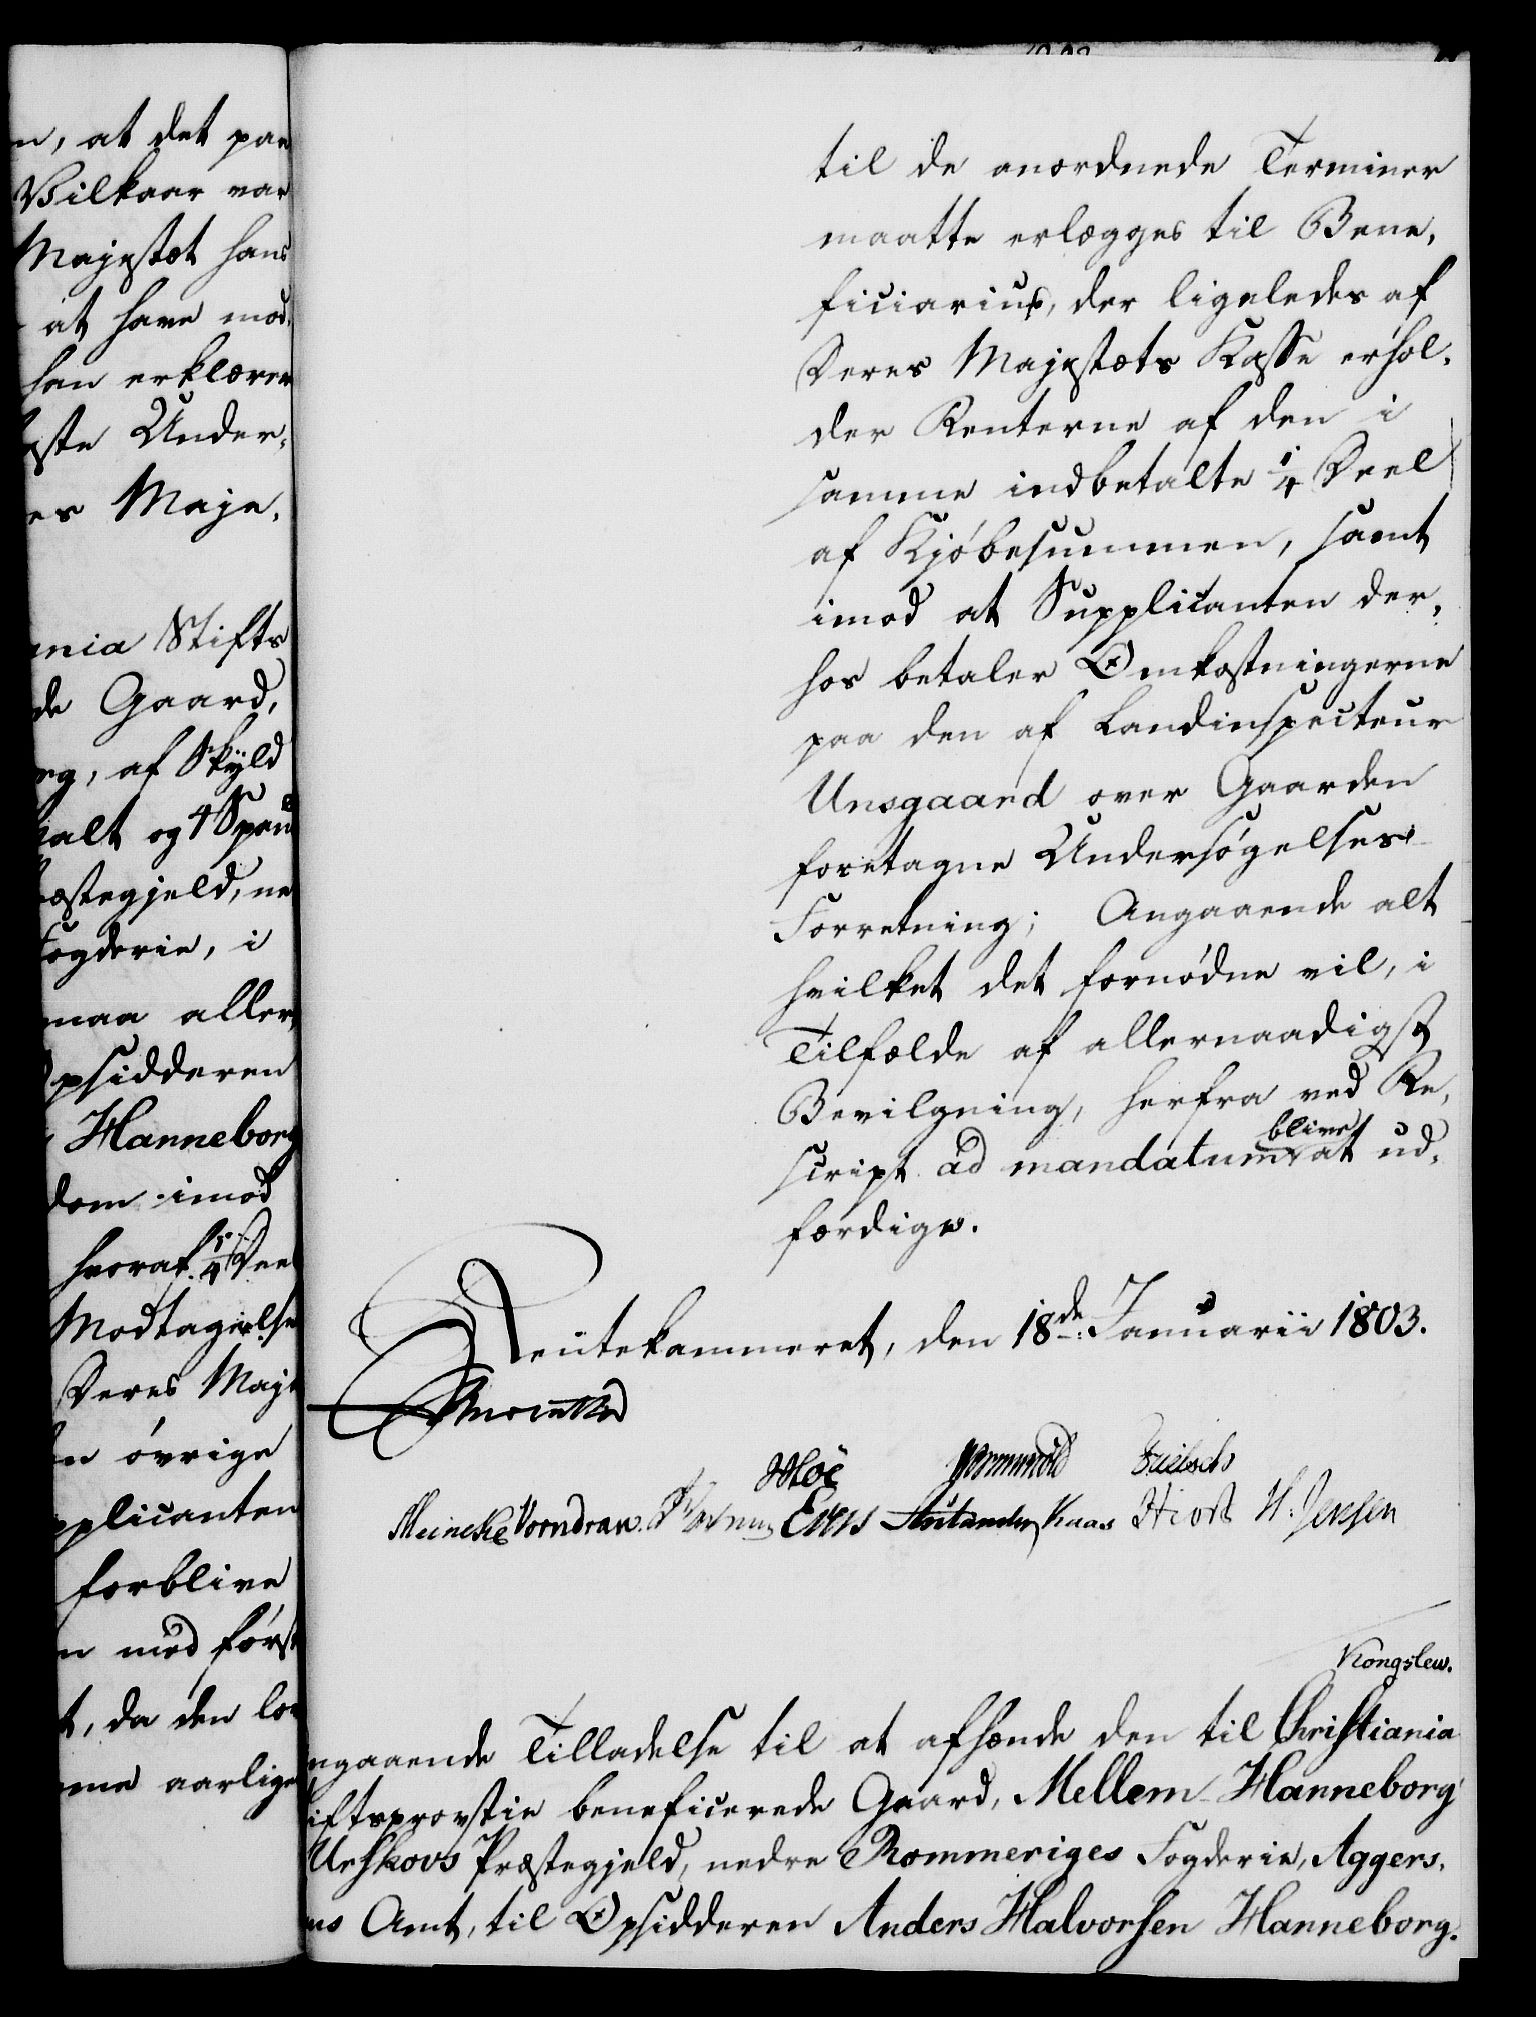 n, at det paa
Vilkaar var
Majestæt hans
at have mod,
han erklærer
ste Under,
es Maje,
ania Stifts
de Gaard,
rg, af Skyld
salt og 4 Span
æstegjeld, ne
Fogderie, i
maa aller,
Opsidderen
Hanneborg
dom imod
hvoraf 1/4 Deel
Modtagelse
Deres Maje
en øvrige
pplicanten
forblive
n med først
t, da den lo
me aarlige
til de anordnede Terminer
maatte erlægges til Bene,
ficiarius, der ligeledes af
Deres Majestæts Kasse erhol,
der Renterne af den i
samme indbetalte 1/4 Deel
af Kjøbesummen, samt
imod at Supplicanten der,
hos betaler Omkostningerne
paa den af Landinspecteur
Unsgaard over Gaarden
foretagne Undersøgelses-
Forretning; Angaaende alt
hvilket det fornødne vil, i
Tilfælde af allernaadigst
Bevilgning, herfra ved Re,
script ad mandatum blive at ud,
færdige.
Rentekammeret, den 18de Januarii 1803.
Reventlow
Moe Wormskiold
Meincke Vorndran Evers Kaas Hiort H. Jensen
Kongslew.
ngaaende Tilladelse til at afhænde den til Christiania
iftsprovstie beneficerede Gaard, Mellem-Hanneborg
Urskovs Præstegjeld, nedre Rommeriges Fogderie, Aggers,
us Amt, til Opsidderen Anders Halvorsen Hanneborg.